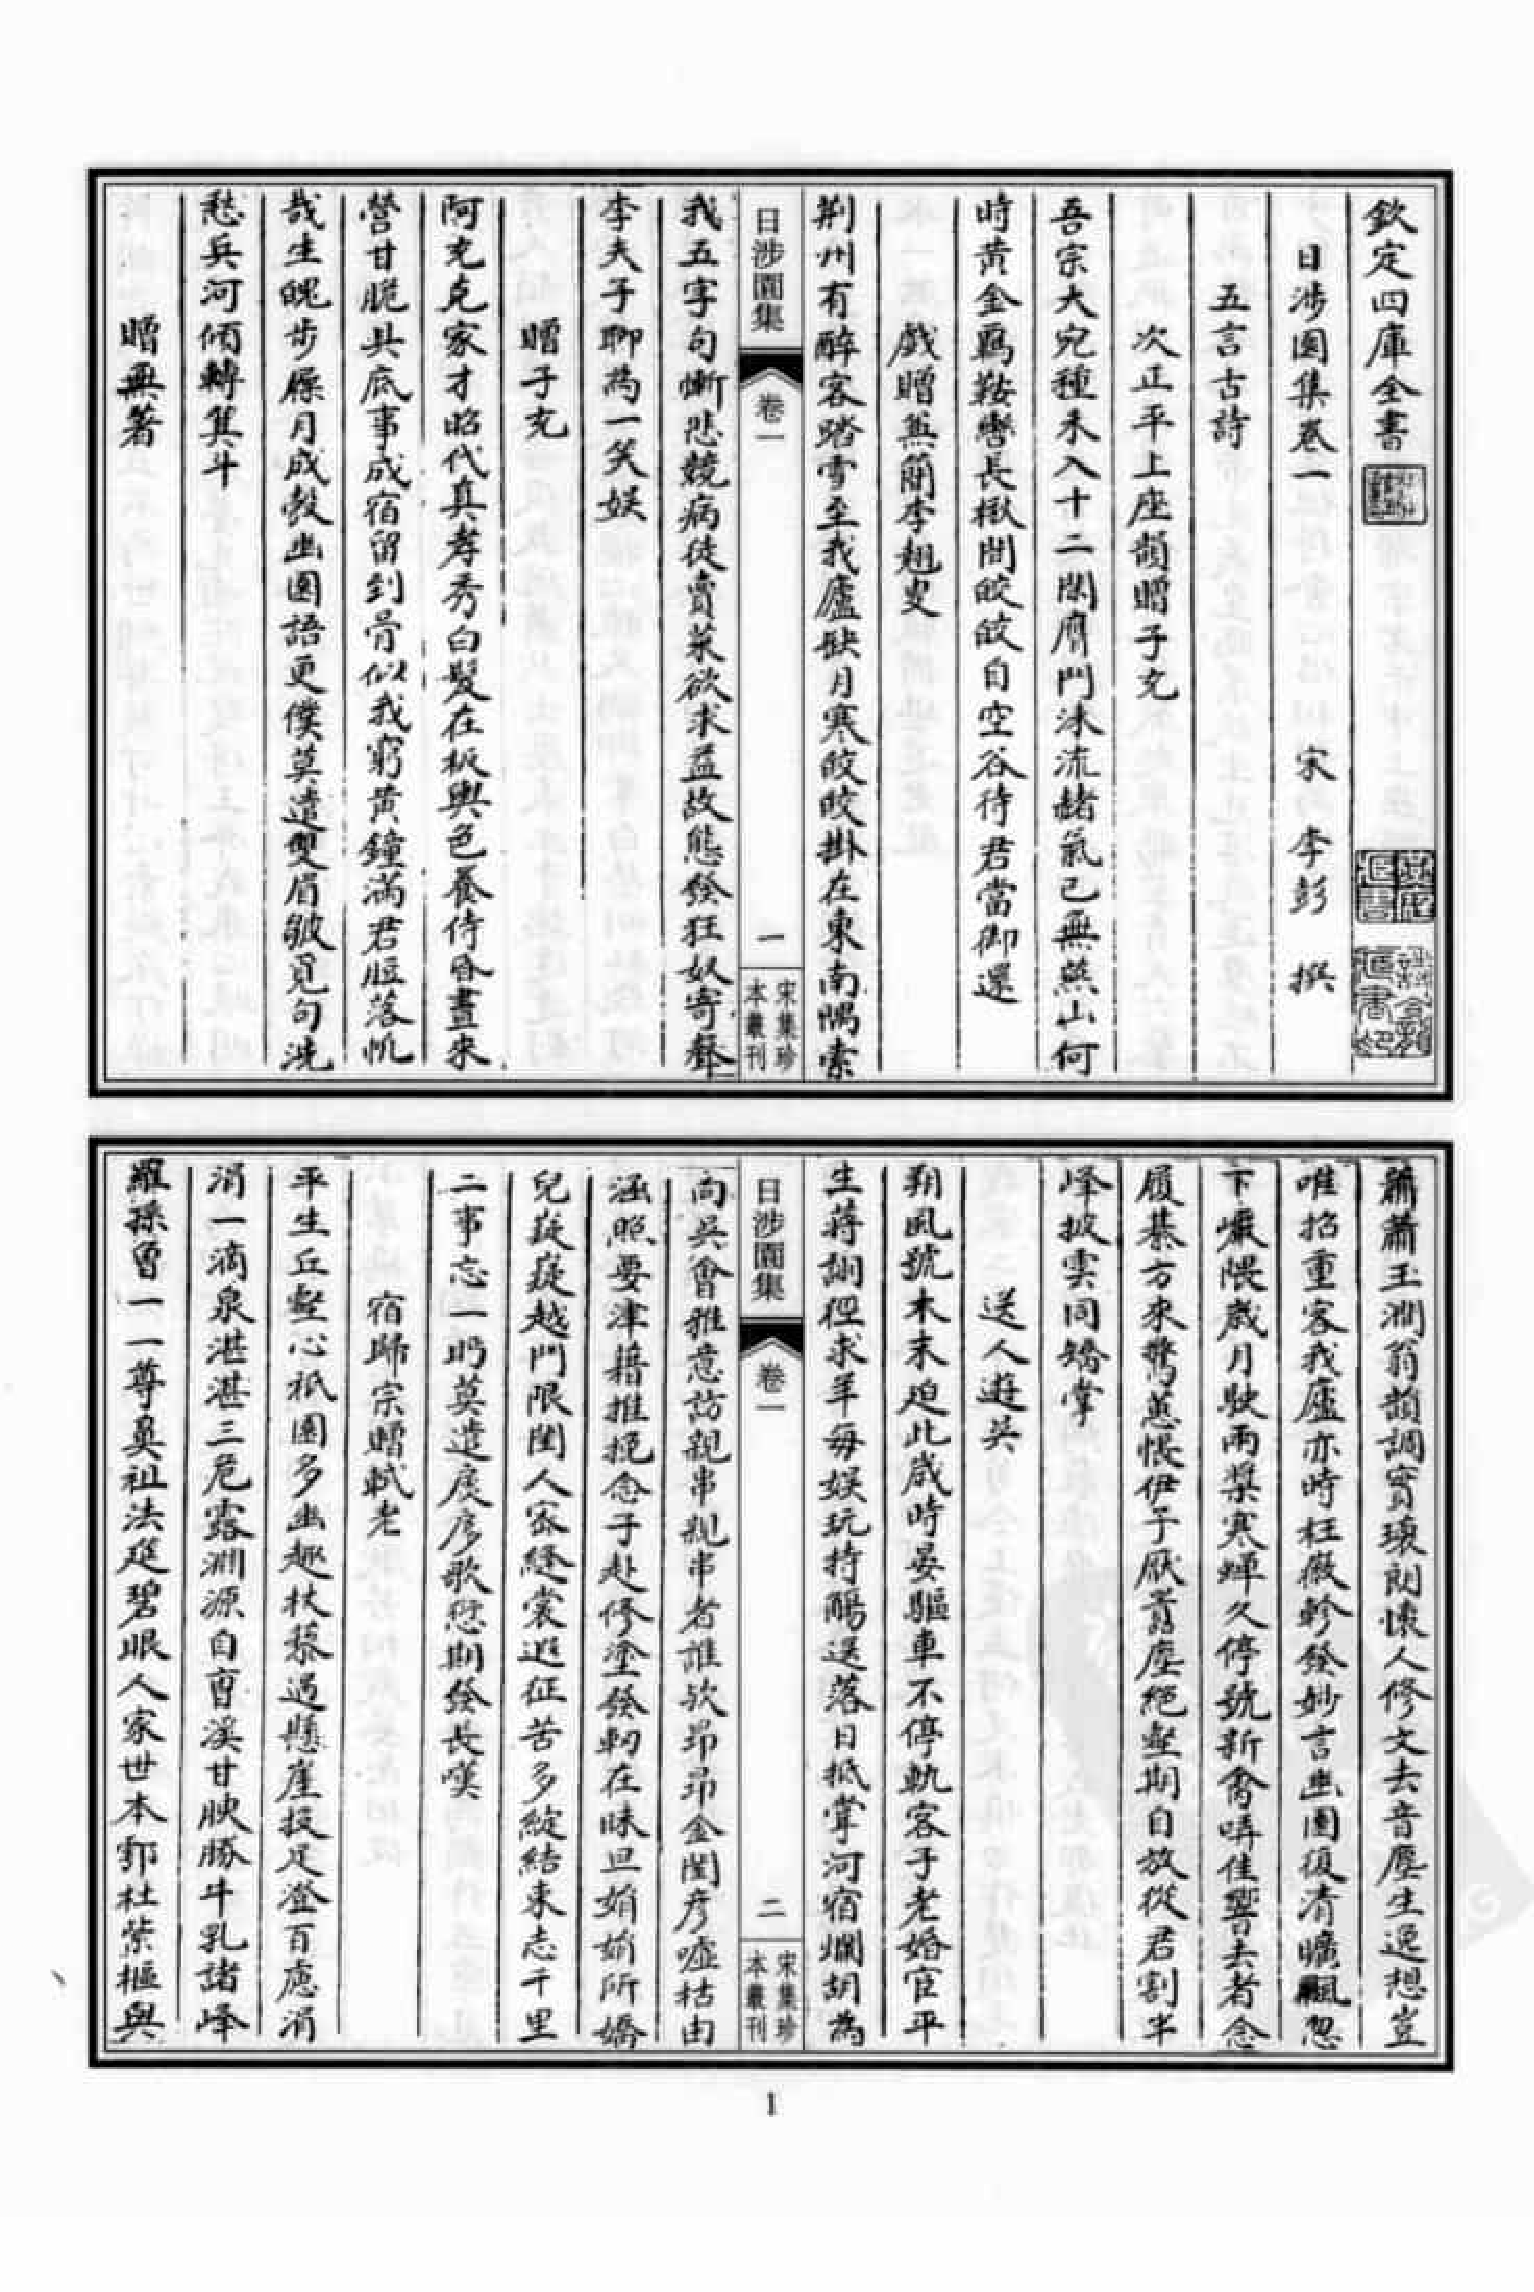 欽定四庫全書
日涉園集卷一 宋 李彭 撰
五言古詩
次正平上座韻贈子充
吾宗大宛種未入十二閑膺門沫流赭氣已無燕山何
時黃金羈鞍轡長楸間皎皎自空谷待君當御還
戲贈無蘭李翹叟
荆州有醉客踏雪至我廬缺月寒皎皎掛在東南隅索
日涉園集
卷一
一
宋集珍本叢刊
我五字句慚悲競病徒賣菜欲求益故態發狂奴寄聲
李夫子聊為一笑娱
贈子充
阿充克家才昭代真孝秀白髮在板輿色養侍昏晝來
營甘脆具底事成宿留到骨似我窮黃鐘滿君脰落帆
哉生魄步屧月成彀幽園語更僕莫遣雙眉皺覓句洗
愁兵河傾轉箕斗
贈無著
蕭蕭玉澗翁韻調實瓌朗懷人修文去音塵生遐想豈
唯招重客我廬亦時枉嚴軫發妙言幽園復清曠颿忽
下巖隈歲月駛兩槳寒蟬久停號新禽哢佳響去者念
履綦方來驚蕙悵伊予厭囂塵絕壑期自放從君割半
峰披雲同矯掌
送人遊吳
朔風號木末迫此歲時晏驅車不停軌客子老婚宦平
生蔣詡徑求羊每娱玩持觴送落日抵掌河宿爛胡為
日涉園集
卷一
二
宋集珍本叢刊
向吳會雅意訪親串親串者誰歟昂昂金閨彦噓枯由
涵照要津藉推挽念子赴修塗發軔在昧旦娟娟所嬌
兒嶷嶷越門限閨人密縫裳遐征苦多綻結束志千里
二事忘一眄莫遣扊扅歌愆期發長嘆
宿歸宗贈軾老
平生丘壑心祇園多幽趣扶藜過懸崖投足澄百慮涓
涓一滴泉湛湛三危露淵源自曹溪甘腴勝牛乳諸峰
羅孫曾一一尊奠祖法筵碧眼人家世本鄠杜紫樞與
1